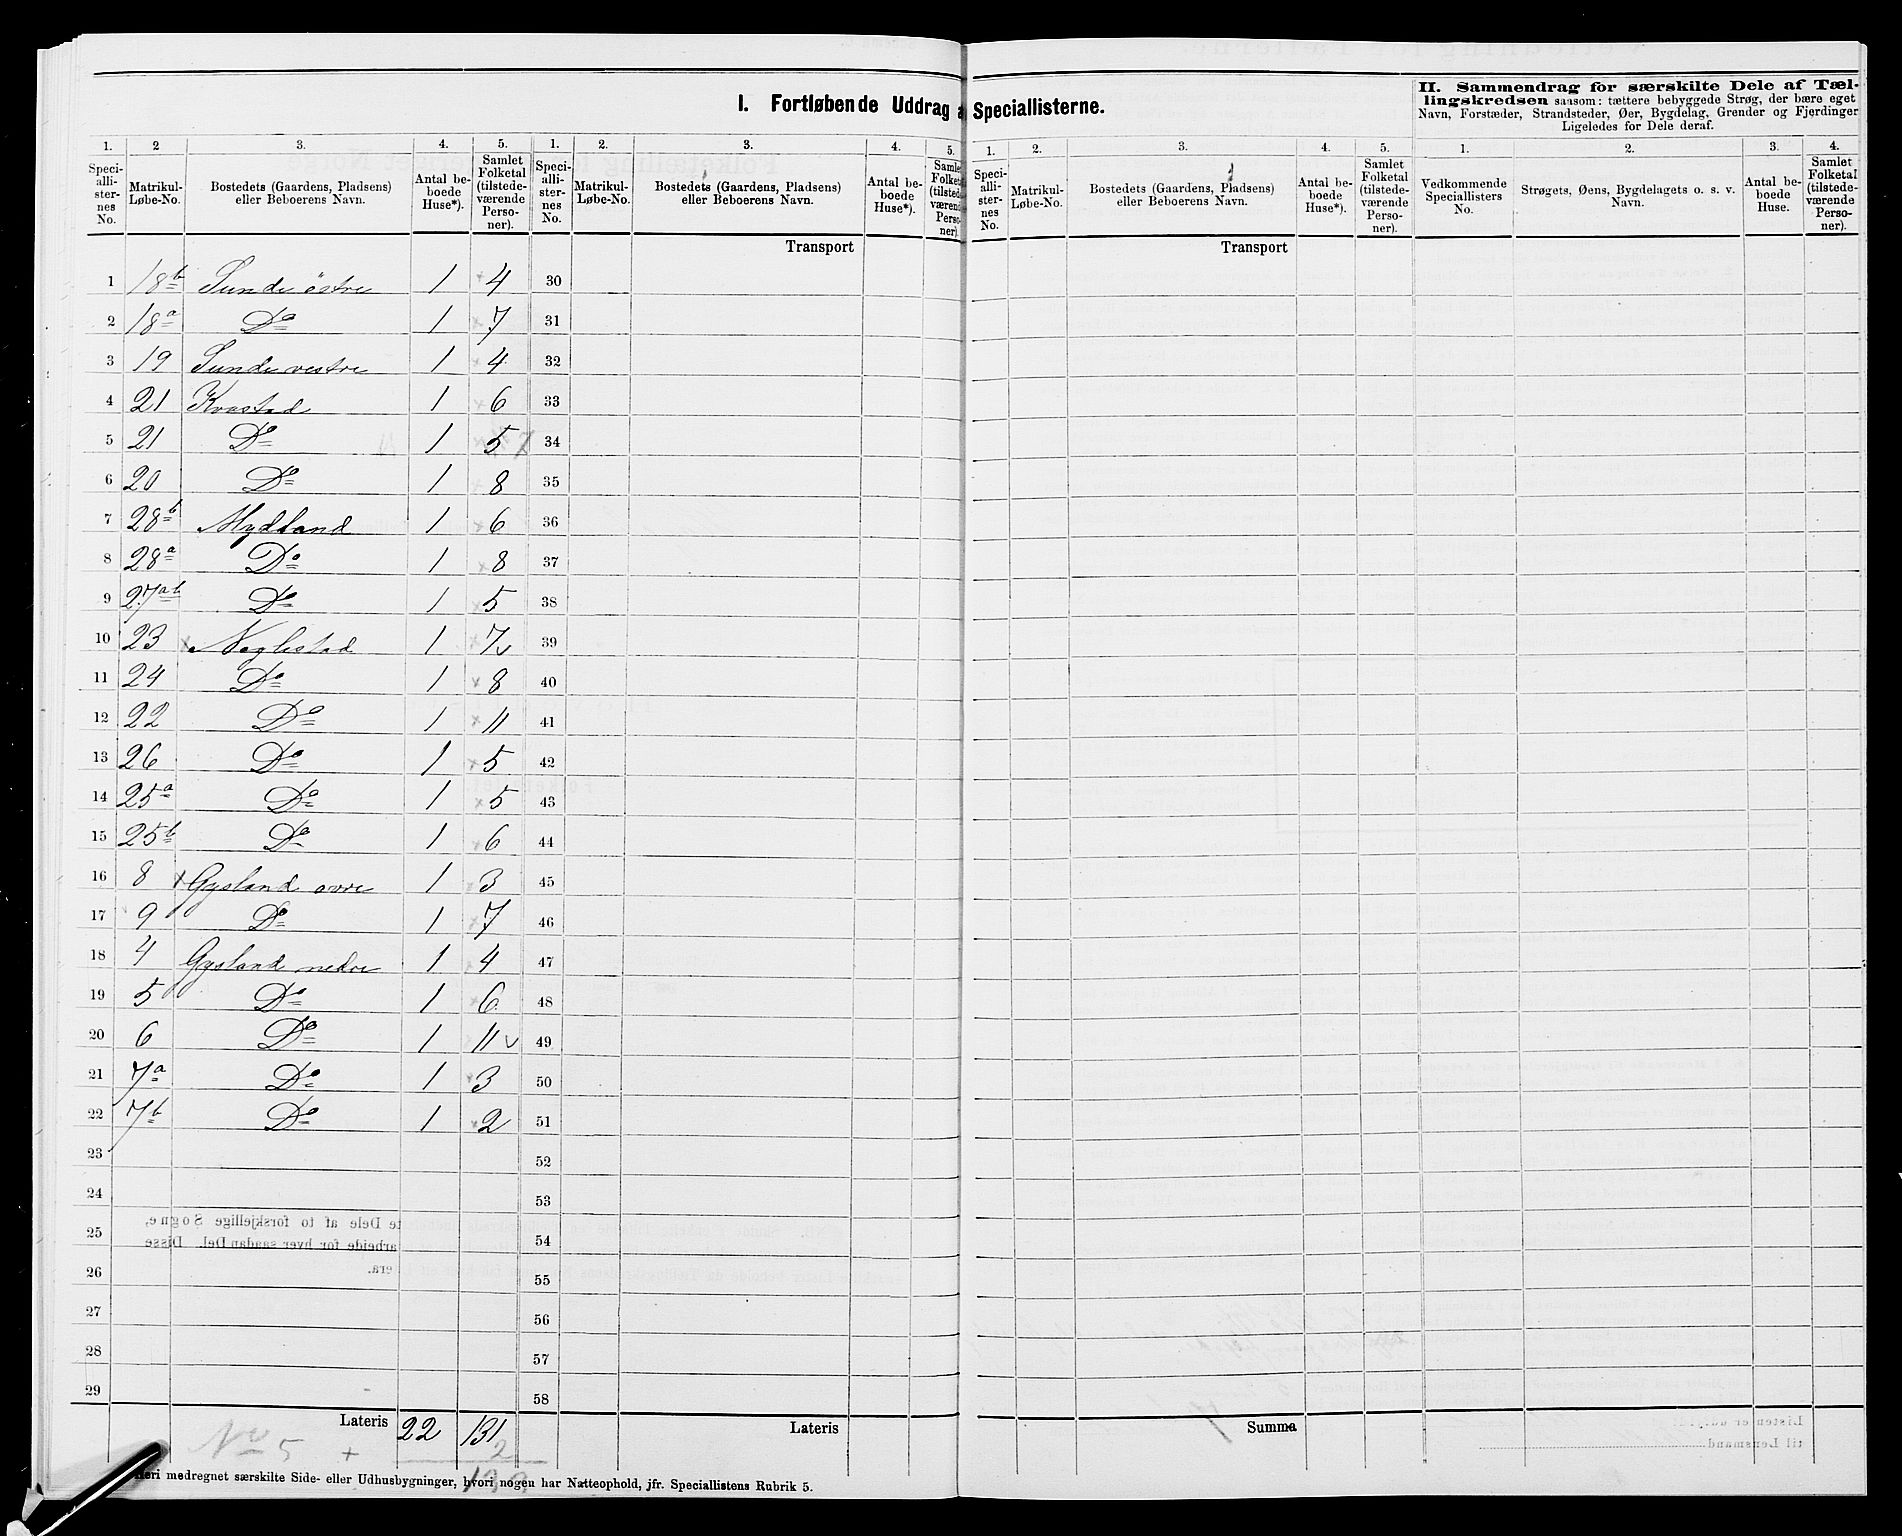 I. Fortløbende Uddrag a Speciallisterne.
II. Sammendrag for særskilte Dele af Tæl-
lingskredsen saasom: tættere bebyggede Strøg, der bære eget
Navn, Forstæder, Strandsteder, Øer, Bygdelag, Grender og Fjerdinger
Ligeledes for Dele deraf.
1. 2 3. 4. 5. 1. 2. 3. 4. 5. 1. 2. 3. 4. 5. 1. 2. 3. 4.
Speci-
alli-
ster-
nes
No.
Matrikul-
Løbe-No.
Bostedets (Gaardens, Pladsens)
eller Beboerens Navn.
Antal be-
boede
Huse*).
Samlet
Folketal
(tilstede-
værende
Perso-
ner).
Speci-
alli-
ster-
nes
No.
Matrikul-
Løbe-No.
Bostedets (Gaardens, Pladsens)
eller Beboerens Navn.
Antal be-
boede
Huse*).
Samlet
Folketal
(tilstede-
værende
Perso-
ner).
Speci-
alli-
ster-
nes
No.
Matrikul-
Løbe-No.
Bostedets (Gaardens, Pladsens)
eller Beboerens Navn.
Antal be-
boede
Huse*).
Samlet
Folketal
(tilstede-
værende
Perso-
ner).
Vedkommende
Speciallisters
No.
Strøgets, Øens, Bygdelagets o. s. v.
Navn.
Antal be-
boede
Huse.
Samlet
Folketal
(tilstede-
værende
Perso-
ner).
Transport Transport
1 18b Sunde östre 1 × 4 30
2 18a Do 1 × 7 31
3 19 Sunde vestre 1 × 4 32
4 21 Kvastad 1 × 6 33
5 21 Do 1 × 5 7 34
6 20 Do 1 × 8 35
7 28b Mydland 1 × 6 36
8 28a Do 1 × 8 37
9 27ab Do 1 × 5 38
10 23 × Neglestad 1 × 7 39
11 24 Do 1 × 8 40
12 22 Do 1 × 11 41
13 26 Do 1 × 5 42
14 25a Do 1 × 5 43
15 25b Do 1 × 6 44
16 8 × Gysland øvre 1 × 3 45
17 9 Do 1 × 7 46
18 4 Gysland nedre 1 × 4 47
19 5 Do 1 × 6 48
20 6 Do 1 11 49
21 7a Do 1 × 3 50
22 7b Do 1 × 2 51
23 52
24 53
25 54
26 55
27 56
28 57
29 58
Lateris 22 131 Lateris Summa
No 5 + 2
133
Heri medregnet særskilte Side- eller Udhusbygninger, hvori nogen har Natteophold, jfr. Speciallistens Rubrik 5.